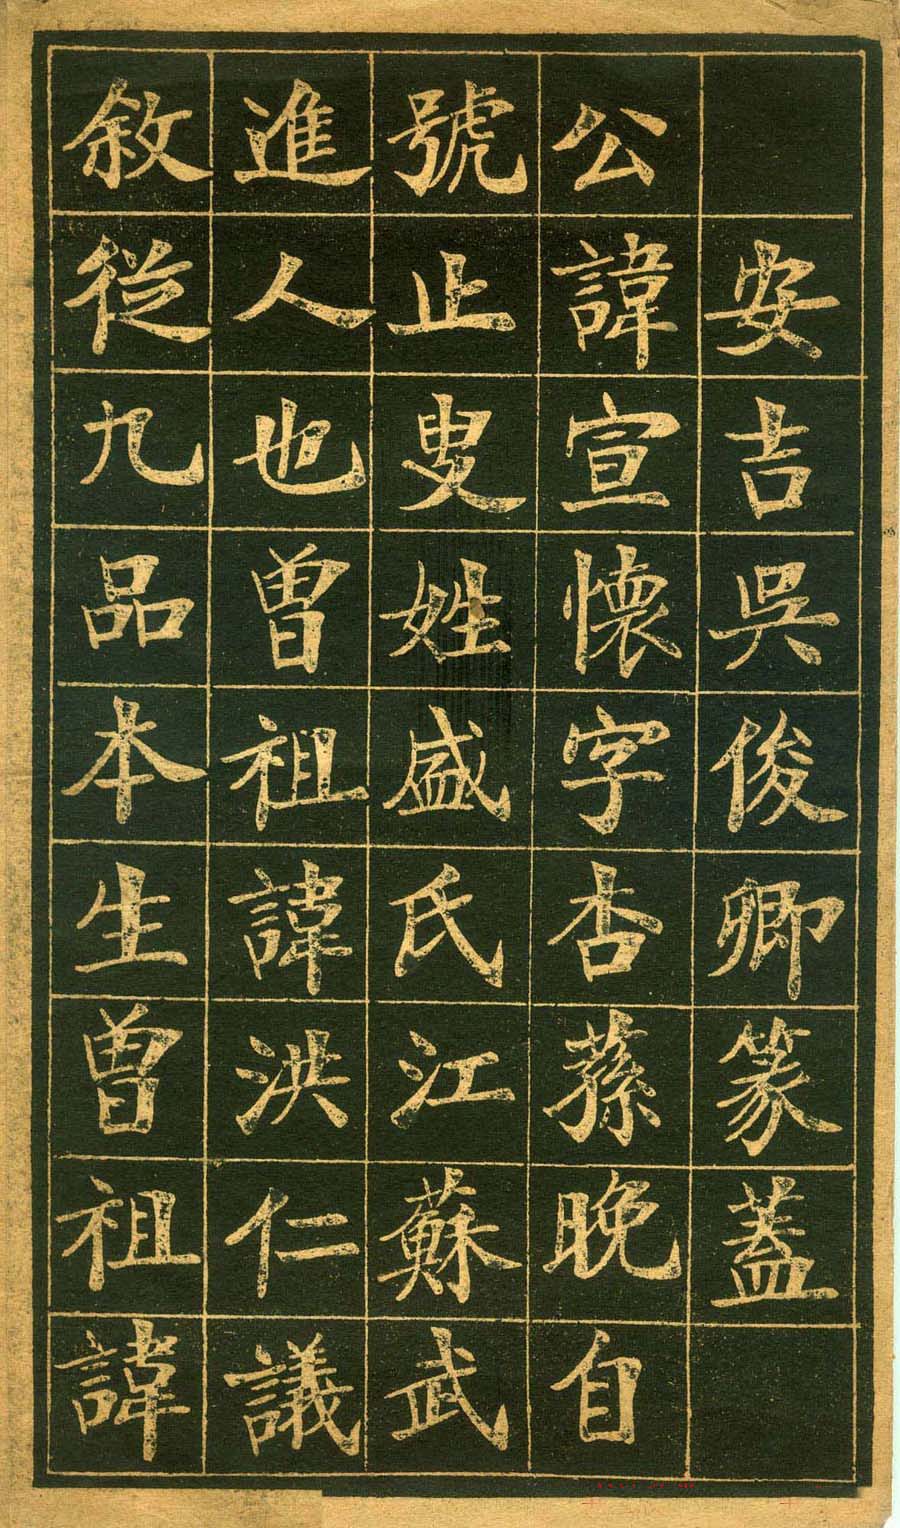 安吉吳俊卿篆蓋
公諱宣懷字杏蓀晚自
號止叟姓盛氏江蘇武
進人也曾祖諱洪仁議
敘從九品本生曾祖諱